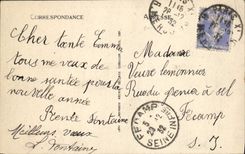 CORRESPONDANCE
Cher tante Emma
tous me vœux de
bonne santée pour la
nouvelle année
Rente Fontaine
Meilleurs vœux
L. Fontaine
Madame
Veuve Lemonnier
Rue du premier à sel
Fécamp
S. I.
FECAMP
SEINE INF